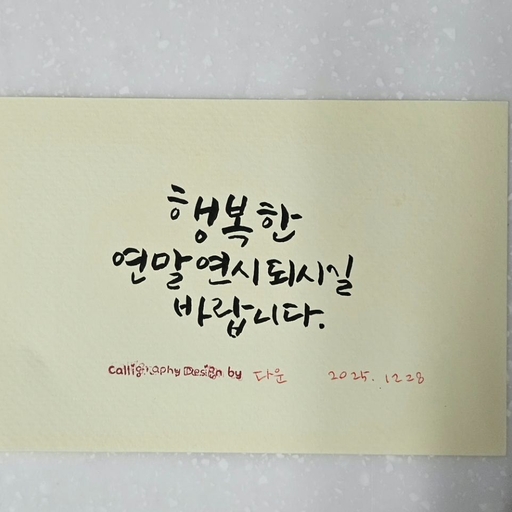 행복한
연말연시되시길
바랍니다.
Calligraphy Design by 다운 2025. 12 28